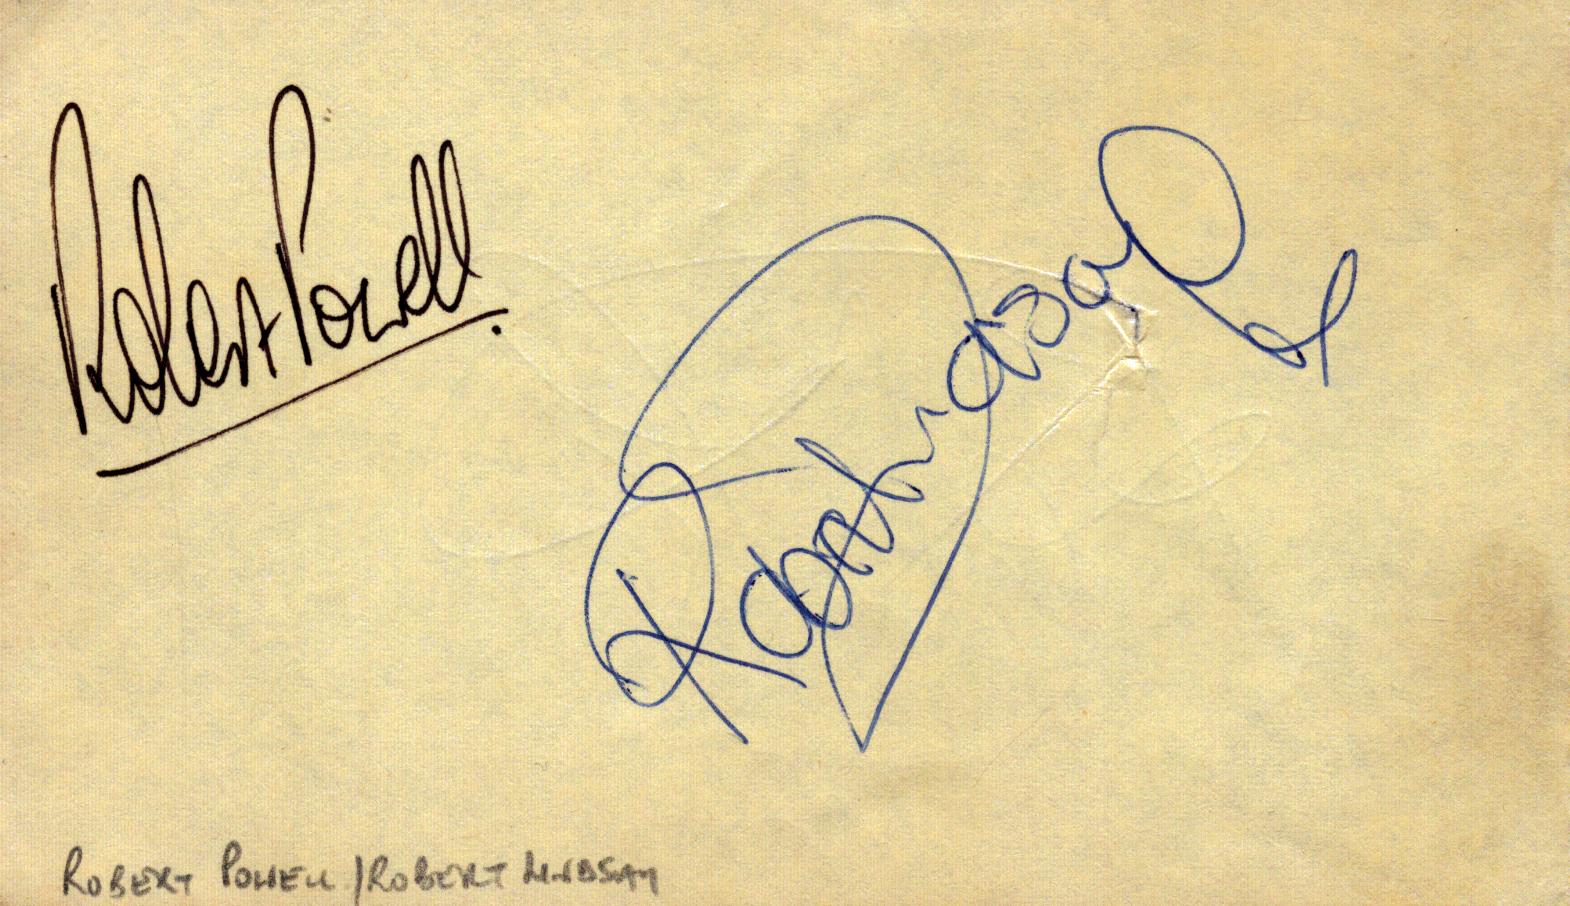 Robert Powell.
Robert Lindsay
ROBERT POWELL / ROBERT LINDSAY